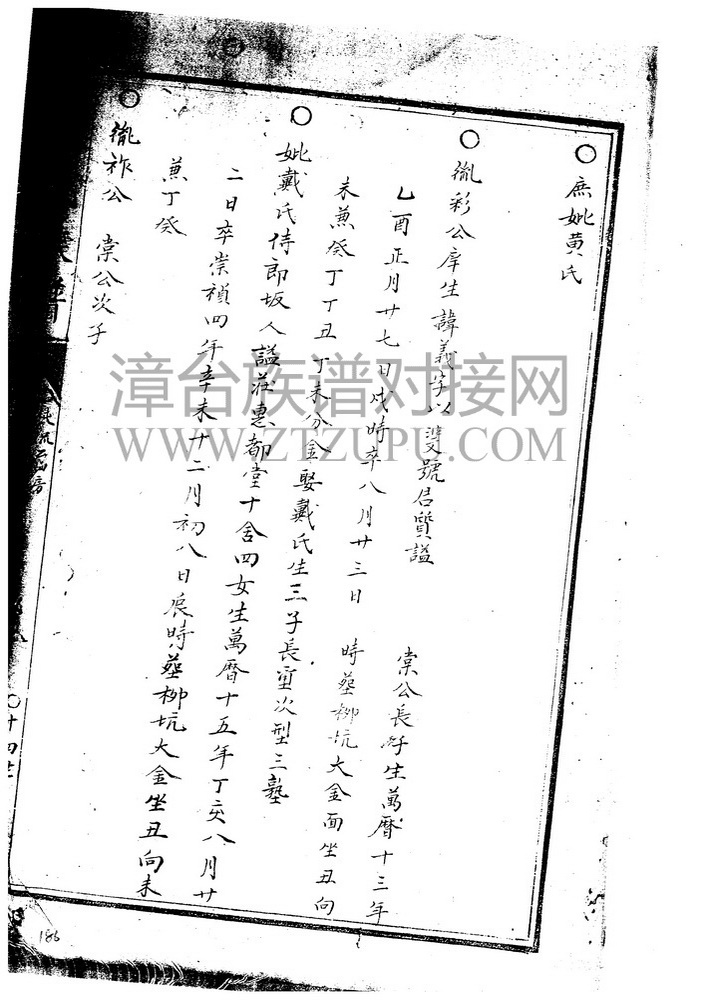 ○庶妣黄氏
○徹彩公庠生諱義字以雙號居質謚 棠公長仔生萬曆十三年
乙酉正月廿七日戌時卒八月廿三日 時葬柳坑大金面坐丑向
未兼癸丁丁丑丁未分金娶戴氏生三子長 次型三塾
○妣戴氏侍郎坂人謚莊惠都堂十舍四女生萬曆十五年丁亥八月廿
二日卒崇禎四年辛未十二月初八日辰時葬柳坑大金坐丑向未
兼丁癸
○胤祚公 棠公次子
○十四世
186
漳台族谱对接网
WWW.ZTZUPU.COM